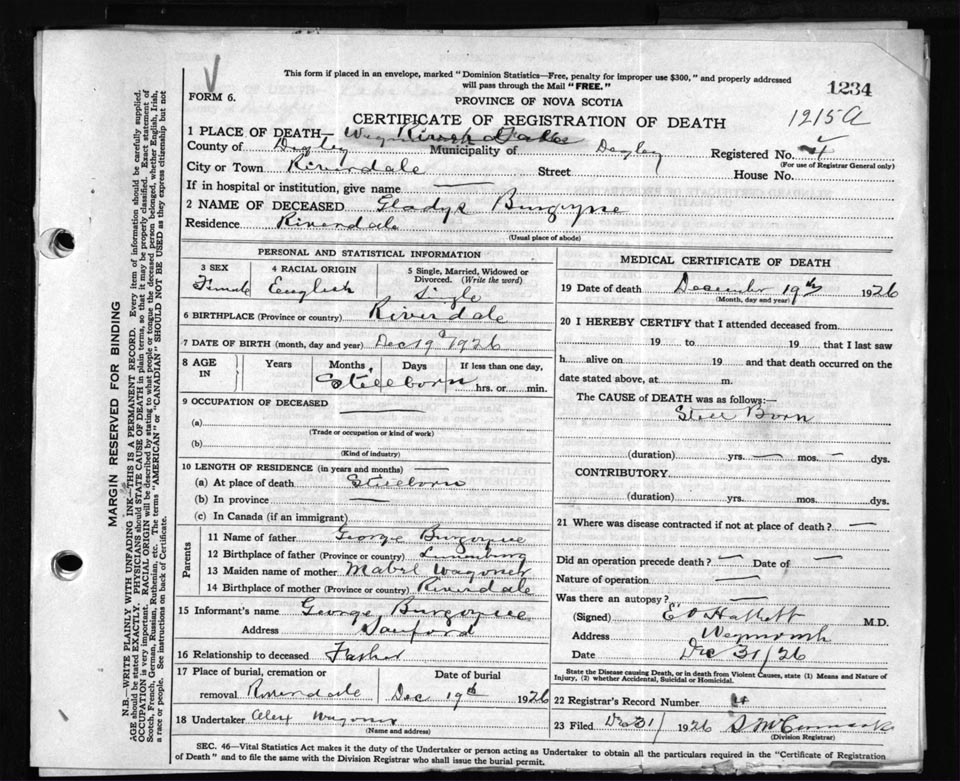 This form if placed in an envelope, marked "Dominion Statistics—Free, penalty for improper use $300," and properly addressed
will pass through the Mail "FREE."
1234
FORM 6.
PROVINCE OF NOVA SCOTIA
CERTIFICATE OF REGISTRATION OF DEATH
1215A
1 PLACE OF DEATH—
County of Digby Municipality of Digby Registered No. 4
(For use of Registrar General only)
City or Town Riverdale Street House No.
If in hospital or institution, give name —
2 NAME OF DECEASED Gladys Burgoyne
Residence Riverdale
(Usual place of abode)
PERSONAL AND STATISTICAL INFORMATION
3 SEX 4 RACIAL ORIGIN 5 Single, Married, Widowed or
Divorced. (Write the word)
Female English Single
6 BIRTHPLACE (Province or country) Riverdale
7 DATE OF BIRTH (month, day and year) Dec 19 1926
8 AGE IN Years Months Days If less than one day,
Stillborn hrs. or min.
9 OCCUPATION OF DECEASED —
(a)
(Trade or occupation or kind of work)
(b)
(Kind of industry)
10 LENGTH OF RESIDENCE (in years and months) —
(a) At place of death Stillborn
(b) In province —
(c) In Canada (if an immigrant)
Parents
11 Name of father George Burgoyne
12 Birthplace of father (Province or country) Lunenburg
13 Maiden name of mother Mabel Wagoner
14 Birthplace of mother (Province or country) Riverdale
15 Informant's name George Burgoyne
Address Sanford
16 Relationship to deceased Father
17 Place of burial, cremation or Date of burial
removal Riverdale Dec 19th 1926
18 Undertaker Alex Wagoner
(Name and address)
MEDICAL CERTIFICATE OF DEATH
19 Date of death December 19th 1926
(Month, day and year)
20 I HEREBY CERTIFY that I attended deceased from
19 to 19 that I last saw
h alive on 19 and that death occurred on the
date stated above, at m.
The CAUSE of DEATH was as follows:—
Still Born
(duration) yrs. — mos. — dys.
CONTRIBUTORY.
(duration) yrs. mos. dys.
21 Where was disease contracted if not at place of death? —
Did an operation precede death? — Date of —
Nature of operation —
Was there an autopsy? —
(Signed) E O Hallett M.D.
Address Weymouth
Date Dec 31/26
State the Disease causing Death, or in death from Violent Causes, state (1) Means and Nature of
Injury, (2) whether Accidental, Suicidal or Homicidal.
22 Registrar's Record Number 4
23 Filed Dec 31 1926 S McCormack
(Division Registrar)
SEC. 46—Vital Statistics Act makes it the duty of the Undertaker or person acting as Undertaker to obtain all the particulars required in the "Certificate of Registration
of Death" and to file the same with the Division Registrar who shall issue the burial permit.
MARGIN RESERVED FOR BINDING
N.B.—WRITE PLAINLY WITH UNFADING INK—THIS IS A PERMANENT RECORD. Every item of information should be carefully supplied.
AGE should be stated EXACTLY. PHYSICIANS should STATE CAUSE OF DEATH in plain terms, so that it may be properly classified. Exact statement of
OCCUPATION is very important. RACIAL ORIGIN will be described by stating to what people or tongue the deceased person belonged, whether English, Irish,
Scotch, French, German, Russian, Ruthenian, etc. The terms "AMERICAN" or "CANADIAN" SHOULD NOT BE USED as they express citizenship but not
a race or people. See instructions on back of Certificate.